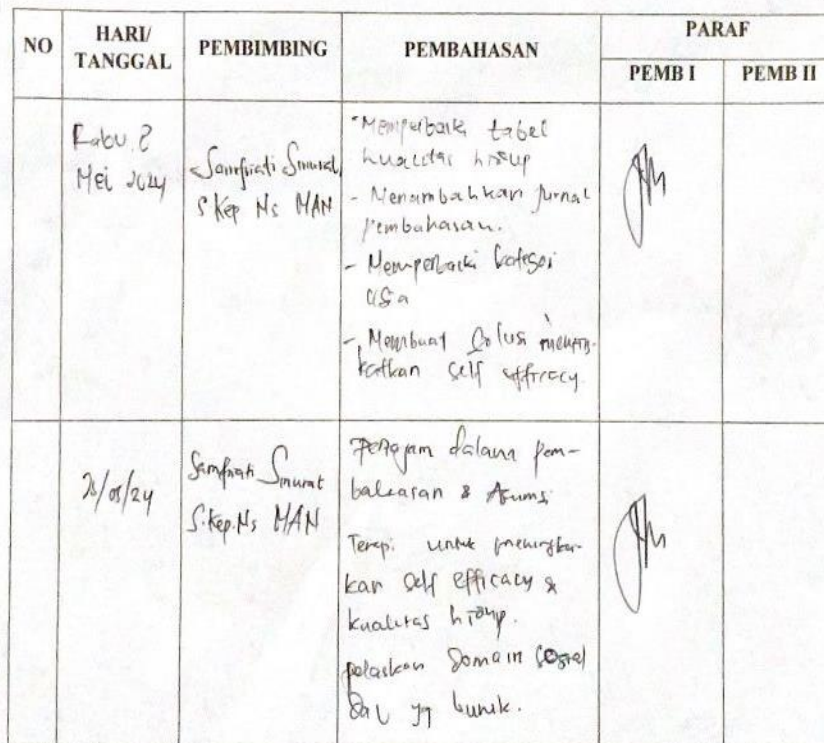 NO
HARI/
TANGGAL
PEMBIMBING
PEMBAHASAN
PARAF
PEMB I
PEMB II
Rabu, 8
Mei 2024
Samfriati Sinurat,
S.Kep Ns MAN
- Memperbaiki tabel
kualitas hidup
- Menambahkan jurnal
pembahasan.
- Memperbaiki kategori
usia
- Membuat Solusi mening-
katkan self efficacy
/24
Samfriati Sinurat
S.Kep.Ns MAN
dalam pem-
& Asumsi
Terapi untuk
kan self efficacy &
kualitas hidup.
Domain Sosial